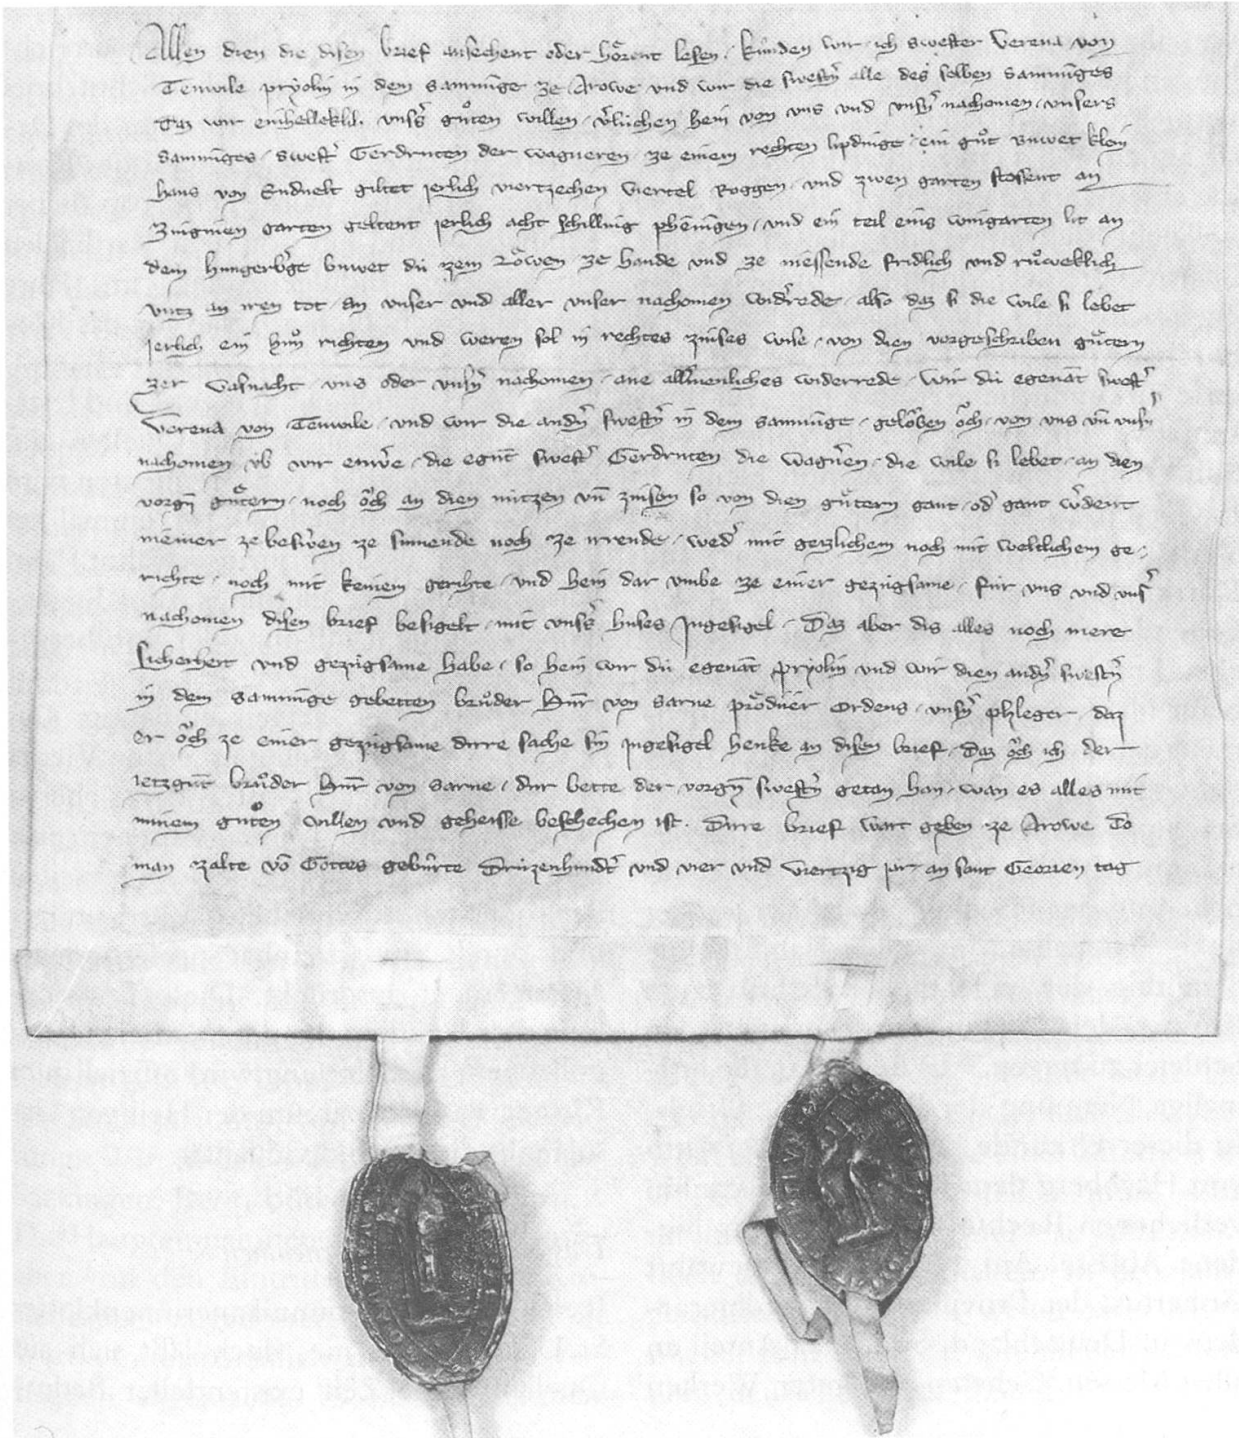 Allen dien die disen brief ansehent oder hoͤrent lesen, kúnden wir, ich swester Verena von
Tenwile pryolin in dem samnunge ze Arowe und wir die swest͛n alle des selben samnunges
Daz wir einhelleklich uns͛s guͦten willen, v͛lúchen hein von uns und uns͛n nachomen, unsers
samnunges, swest͛ Gerdruten der wagneren, ze einem rechten lipdinge, ein guͦt buwet klein
hans von Endvelt giltet jerlich viertzechen viertel Roggen, und zwen garten stossent an
garten geltent jerlich acht schilling phēnigen, und ein teil eins wingarten lit an
dem hungerb͛ge buwet dú zem Roͤwen ze hande und ze niessende fridlich und ruͦweklich
untz an iren tot, an unser und aller unser nachomen wid͛rede, also daz si die wile si lebet
jerlich ein huͦn richten und weren sol in rechtes zinses wise, von dien vorgeschriben guͤtern
zer vasnacht, uns oder uns͛n nachomen, ane all͛menliches widerrede, Wir dú egenāt swest͛
Verena von Tenwile, und wir die and͛n swest͛n in dem samnūge, geloben oͮch, von uns un̄ uns͛n
nachomen die egn̄t swest͛ Gerdruten die Wagn͛en, die wile si lebet, an dien
vorgn̄ guͤtern, noch oͮch an dien nutzen un̄ zinsen so von dien guͤtern gant, od͛ gant w͛dent
niemer ze besw͛en ze sumende noch ze irrende, wed͛ mit geislichem noch mit weltlichem ge-
richte, noch mit keinem gerihte, und hein dar umbe ze einer gezúgsame, fúr uns und uns͛
nachomen disen brief besigelt, mit uns͛s huses Ingesigel, Daz aber dis alles noch mere
sicherheit und gezúgsame habe, so hein wir dú egenāt pryolin und wir dien and͛n swest͛n
in dem samnunge gebetten bruͦder von Sarne ordens, uns͛n phleger, daz
er oͮch ze einer gezúgsame dirre sache sin Ingesigel henke an disen brief, Daz oͮch ich der
ietzgn̄t bruͦder von Sarne, dur bette der vorgn̄ swest͛n getan han, wan es alles mit
minem guͦten willen und geheisse beschechen ist. Dirre brief wart geben ze Arowe do
man zalte vō Gottes gebúrte Drúzenhund͛t und vier und viertzig jar, an sant Georien tag